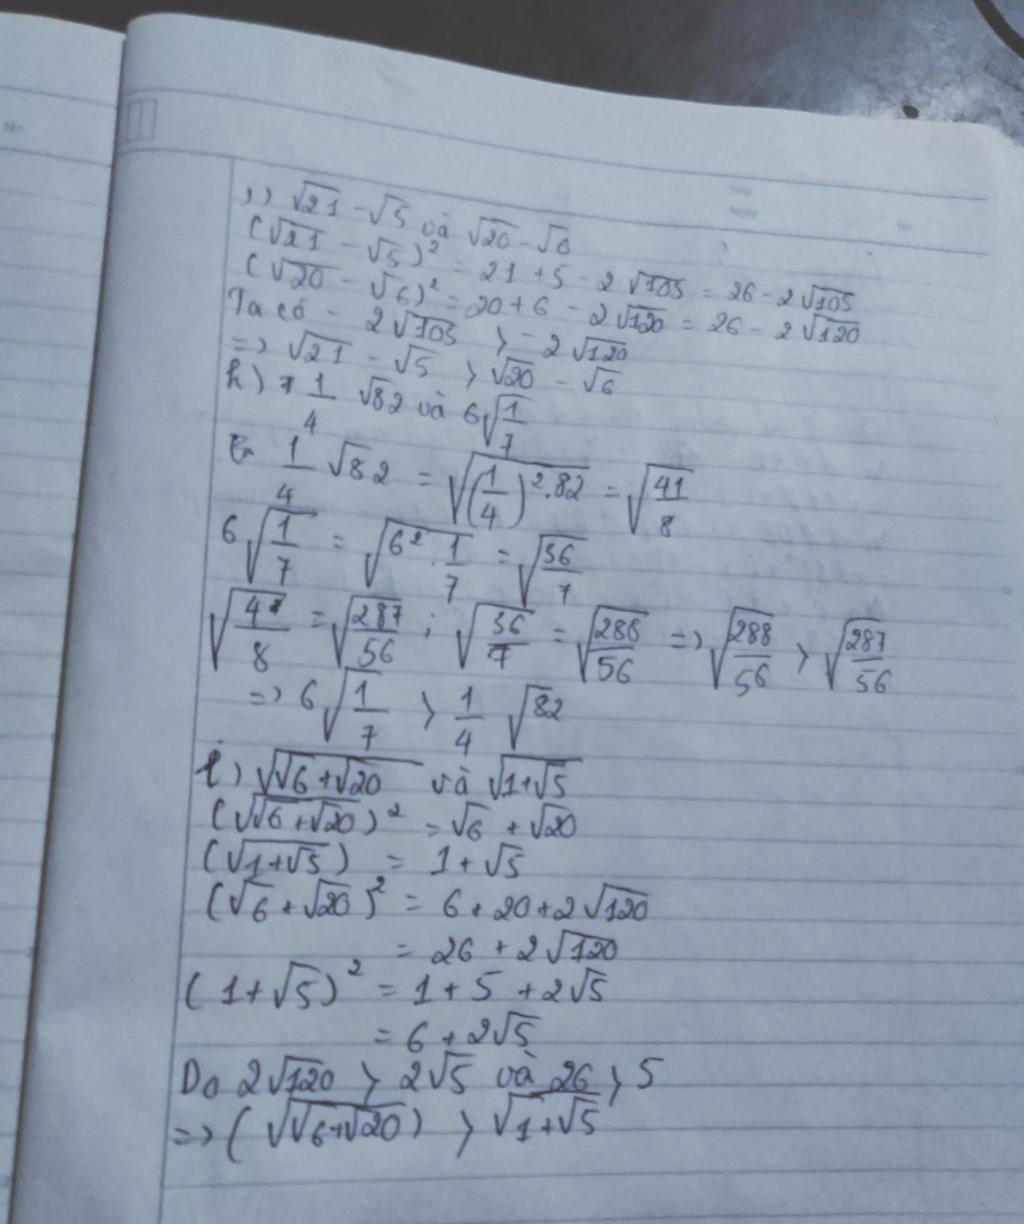 j) √21 - √5 và √20 - √6
(√21 - √5)² = 21 + 5 - 2√105 = 26 - 2√105
(√20 - √6)² = 20 + 6 - 2√120 = 26 - 2√120
Ta có - 2√105 > - 2√120
=> √21 - √5 > √20 - √6
k) 1/4 √82 và 6√(1/7)
1/4 √82 = √((1/4)².82) = √(41/8)
6√(1/7) = √(6².1/7) = √(36/7)
√(41/8) = √(287/56) ; √(36/7) = √(288/56) => √(288/56) > √(287/56)
=> 6√(1/7) > 1/4 √82
l) √(√6+√20) và √(1+√5)
(√(√6+√20))² = √6 + √20
(√(1+√5)) = 1 + √5
(√6 + √20)² = 6 + 20 + 2√120
= 26 + 2√120
(1+√5)² = 1 + 5 + 2√5
= 6 + 2√5
Do 2√120 > 2√5 và 26 > 5
=> (√(√6+√20)) > √(1+√5)